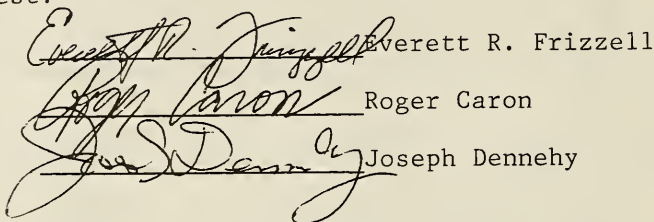 Everett R. Frizzell Everett R. Frizzell
Roger Caron Roger Caron
Joseph Dennehy